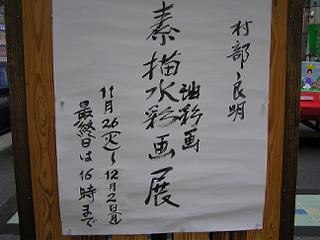 村部良明
素描水彩画展
油彩画
11月26(火)〜12月2日(月)
最終日は16時まで